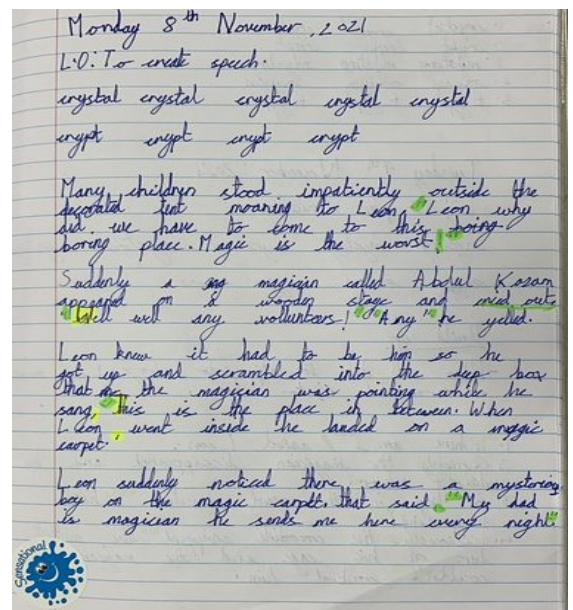 Monday 8th November, 2021
L.O: To create speech.
crystal crystal crystal crystal crystal
crypt crypt crypt crypt
Many children stood impatiently outside the
decorated tent moaning to Leon, "Leon why
did we have to come to this boing
boring place. Magic is the worst!"
Suddenly a magician called Abdul Kazam
appeared on a wooden stage and cried out,
"Well well any volunteers! "Any" he yelled.
Leon knew it had to be him so he
got up and scrambled into the deep box
that the magician was pointing while he
sang, "This is the place in between. When
Leon, went inside he landed on a magic
carpet.
Leon suddenly noticed there was a mysterious
boy on the magic carpet, that said, "My dad
is magician he sends me here every night"
Sensational